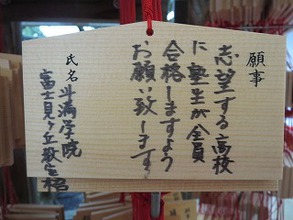 願事
志望する高校
に塾生が全員
合格しますよう
お願い致します
氏名
斗満学院
富士見ヶ丘教室